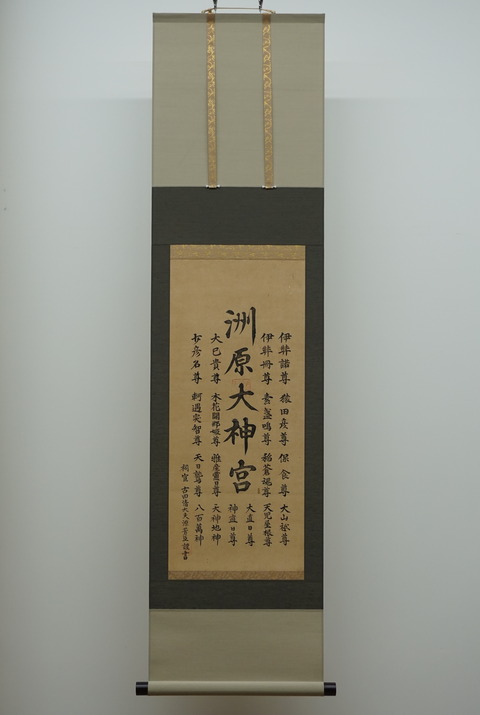 伊弉諾尊 猿田彦尊 保食尊 大山祇尊
伊弉冊尊 素盞嗚尊 稲蒼魂尊 天児屋根尊
大直日尊
洲原大神宮
神直日尊
大已貴尊 木花開耶姫尊 雅産靈日尊 天神地神
少彦名尊 軻遇突智尊 天日鷲尊 八百萬神
祠官 古田 大夫源 謹書